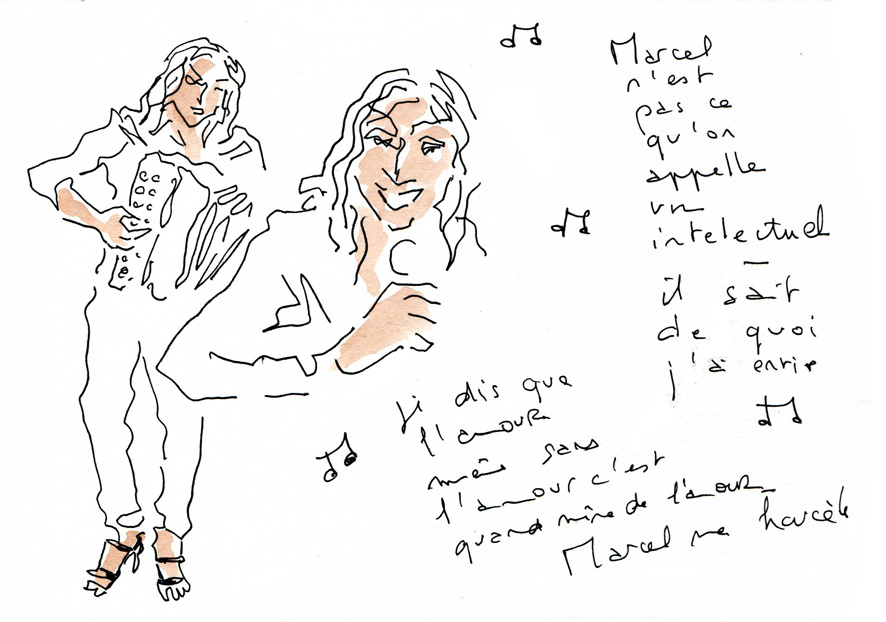 Marcel
n'est
pas ce
qu'on
appelle
un
intelectuel
–
il sait
de quoi
j'ai envie
Si dis que
l'amour
même sans
l'amour c'est
quand même de l'amour
Marcel me harcèle